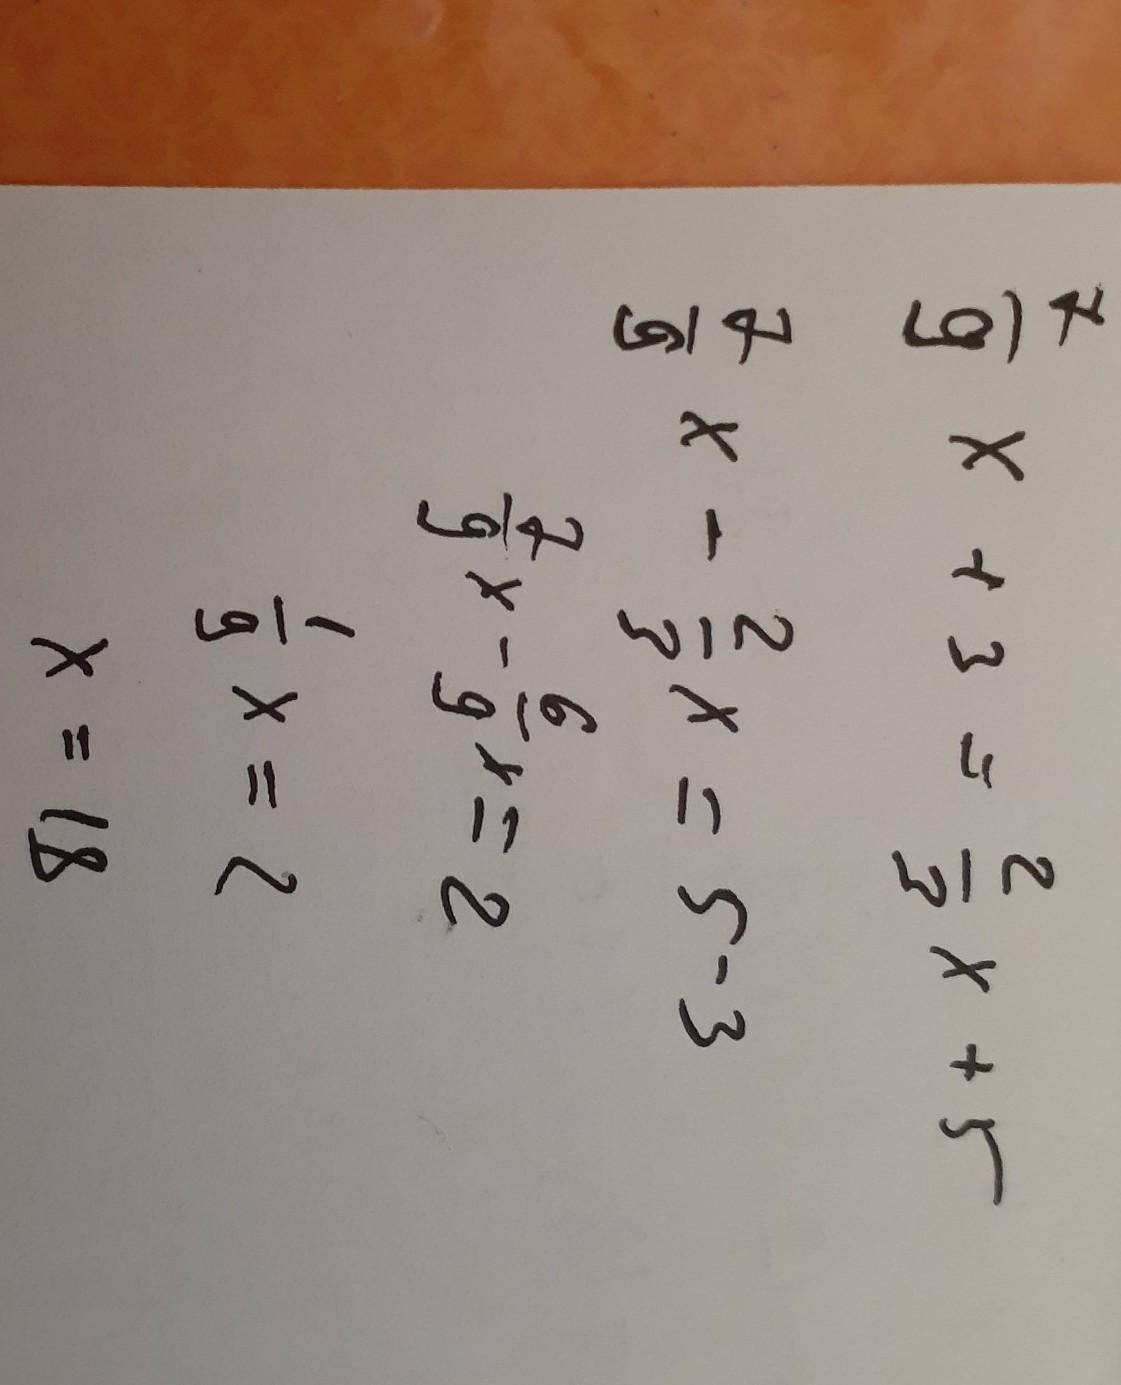 7/9 x + 3 = 2/3 x + 5
7/9 x - 2/3 x = 5 - 3
7/9 x - 6/9 x = 2
1/9 x = 2
x = 18